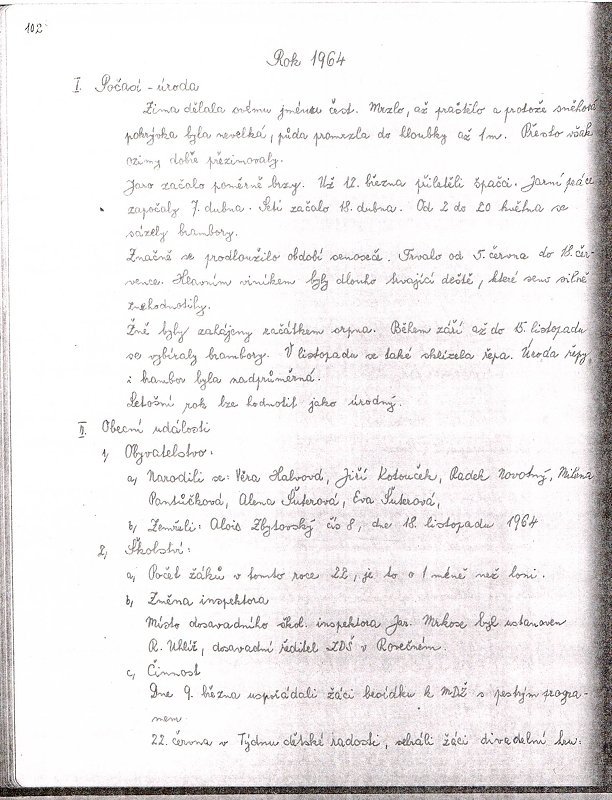 102
Rok 1964
I. Počasí - úroda
Zima dělala svému jménu čest. Mrzlo, až praštělo a protože sněhová
pokrývka byla nevelká, půda promrzla do hloubky až 1 m. Přesto však
ozimy dobře přezimovaly.
Jaro začalo poměrně brzy. Už 12. března přiletěli špačci. Jarní práce
započaly 7. dubna. Setí začalo 18. dubna. Od 2 do 20 května se
sázely brambory.
Značně se prodloužilo období senoseče. Trvalo od 5. června do 18. čer-
vence. Hlavním viníkem byly dlouho trvající deště, které seno silně
znehodnotily.
Žně byly zahájeny začátkem srpna. Během září až do 15. listopadu
se vybíraly brambory. V listopadu se také sklízela řepa. Úroda řepy
i brambor byla nadprůměrná.
Letošní rok lze hodnotit jako úrodný.
II. Obecní události
1, Obyvatelstvo:
a, Narodili se: Věra Halvová, Jiří Kotouček, Radek Novotný, Milena
Pantůčková, Alena Šuterová, Eva Šuterová,
b, Zemřeli: Alois Zbytovský čís 8, dne 18. listopadu 1964
2, Školství:
a, Počet žáků v tomto roce 22, je to o 1 méně než loni.
b, Změna inspektora
Místo dosavadního škol. inspektora Jar. Mrkose byl ustanoven
R. Uhlíř, dosavadní ředitel ZDŠ v Rovečném.
c, Činnost
Dne 9. března uspořádali žáci besídku k MDŽ s pestrým progra-
mem
22. června v Týdnu dětské radosti, sehráli žáci divadelní hru: